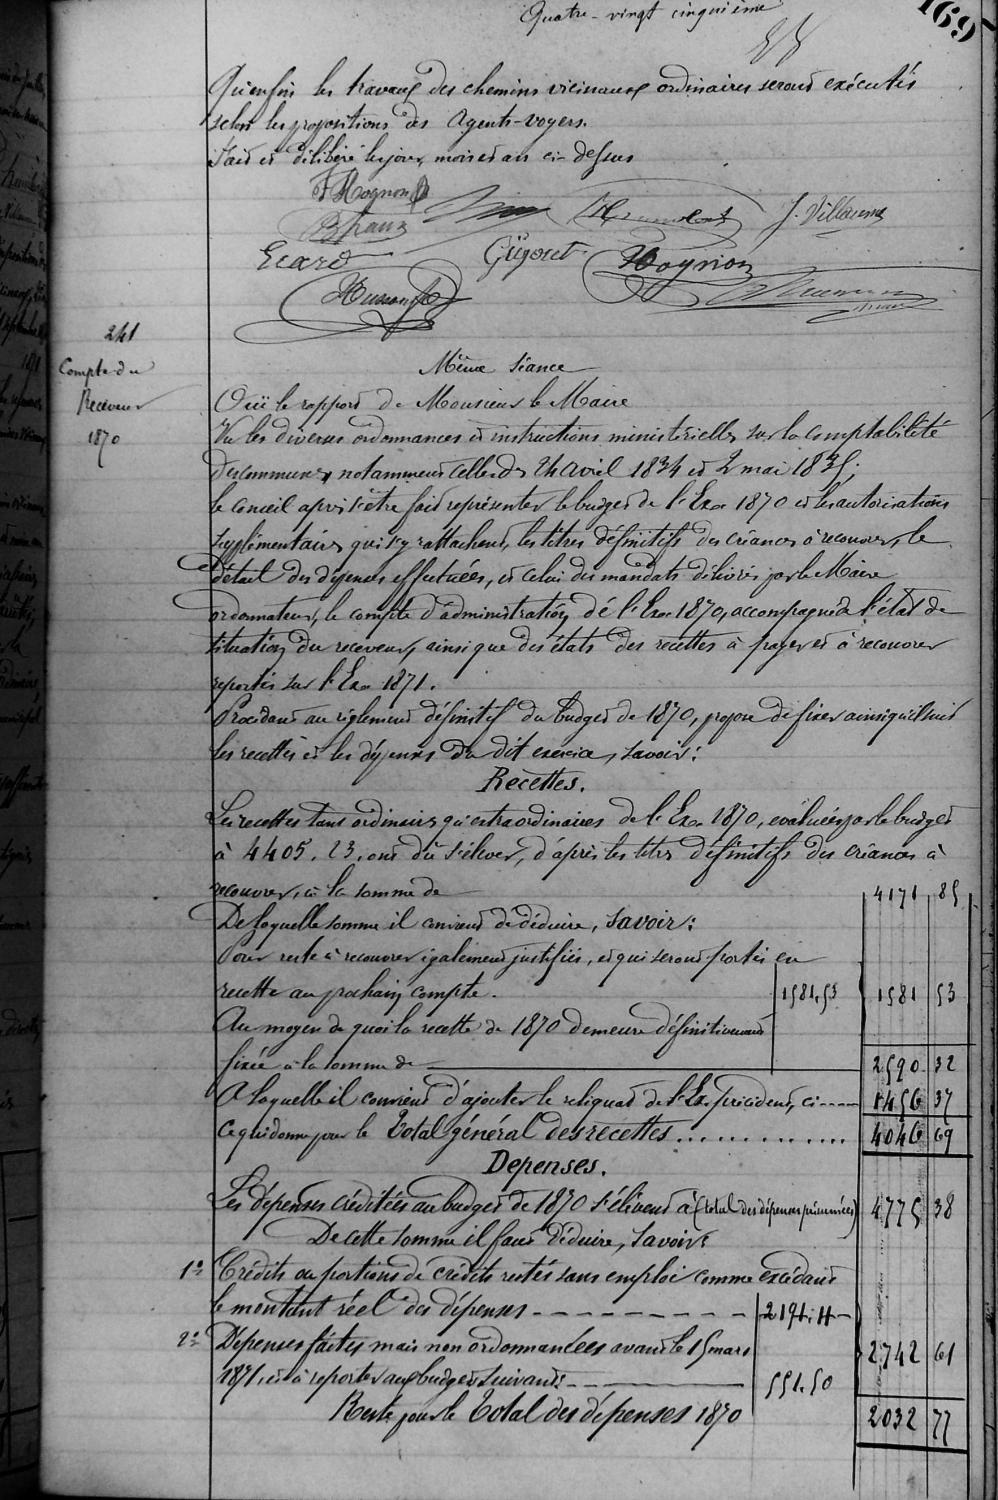 Quatre-vingt cinquième
169
Qu'enfin les travaux des chemins vicinaux ordinaires seront exécutés
selon les propositions des Agents-voyers.
Fait et délibéré les jour, mois et an ci-dessus
Hognon
Ecard
Gigoret
J. Villaume
Hognon
241
Compte du
Receveur
1870
Même Séance
Ouï le rapport de Monsieur le Maire
Vu les diverses ordonnances et instructions ministérielles sur la comptabilité
des communes, notamment celle des 24 avril 1834 et 2 mai 1835;
le conseil après s'être fait représenter le budget de l'Exce 1870 et les autorisations
supplémentaires qui s'y rattachent, les titres définitifs des créances à recouvrer, le
détail des dépenses effectuées, et celui des mandats délivrés par le Maire
ordonnateur, le compte d'administration de l'Exce 1870, accompagné de l'état de
situation du receveur, ainsi que des états des recettes à payer et à recouvrer
reportés sur l'Exce 1871.
Procédant au règlement définitif du budget de 1870, propose de fixer ainsi qu'il suit
les recettes et les dépenses du dit exercice, savoir:
Recettes.
Les recettes tant ordinaires qu'extraordinaires de l'Exce 1870, évaluées par le budget
à 4405.23, ont dû s'élever, d'après les titres définitifs des créances à
recouvrer, à la somme de 4171 85
De laquelle somme il convient de déduire, savoir:
Pour reste à recouvrer également justifiés, et qui seront portés en
recette au prochain compte. 1581,53 1581 53
Au moyen de quoi la recette de 1870 demeure définitivement
fixée à la somme de 2590 32
A laquelle il convient d'ajouter le reliquat de l'Ex. précédent, ci 1456 37
Ce qui donne pour le Total général des recettes 4046 69
Depenses.
Les dépenses créditées au budget de 1870 s'élèvent à (total des dépenses présumées) 4775 38
De cette somme il faut déduire, Savoir:
1° Crédits ou portions de crédits restés sans emploi comme excédant
le montant réel des dépenses 2191.11
2° Dépenses faites mais non ordonnancées avant le 15 mars 2742 61
1871, et à reporter aux budgets suivants 551.50
Reste pour le Total des dépenses 1870 2032 77